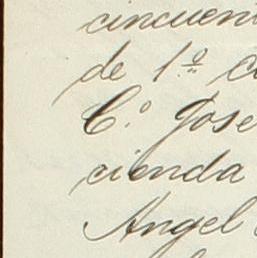 cincuen
de 1º C
C.º Jose
cienda
Angel